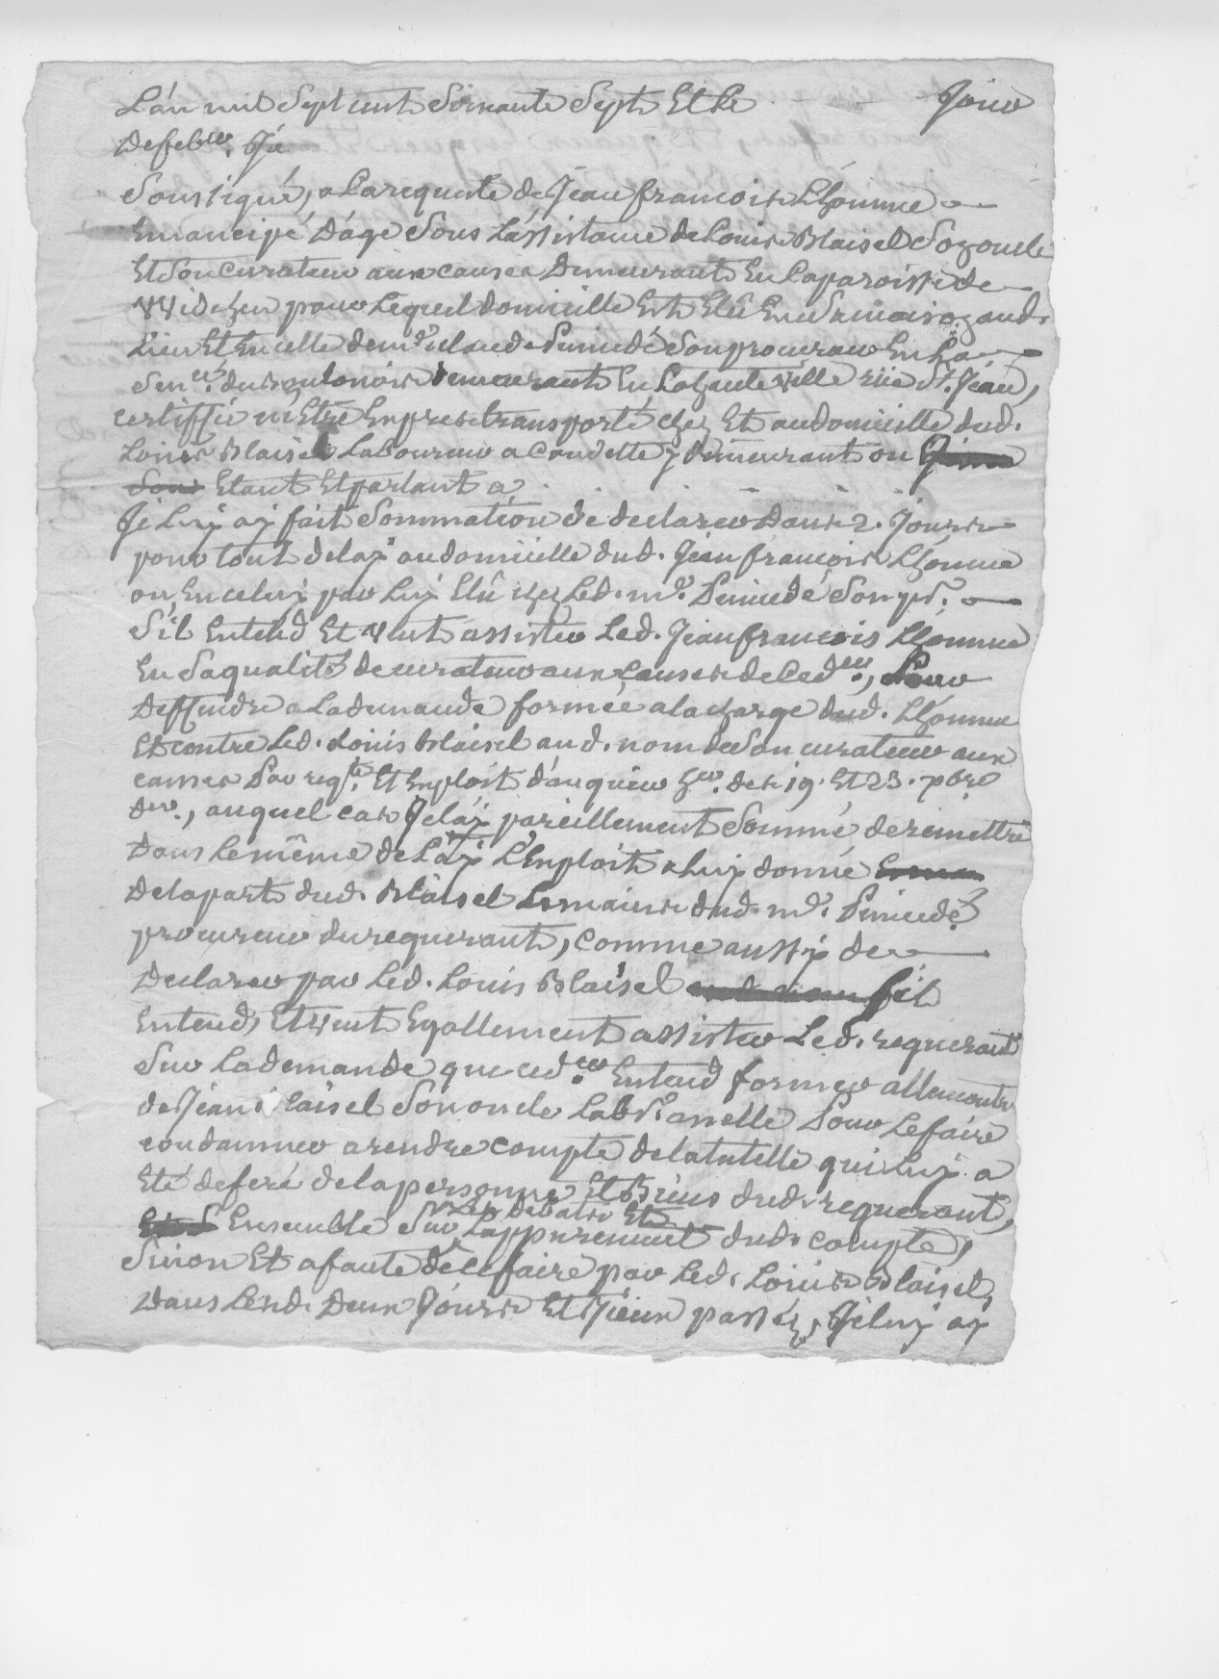 L'an mil sept cent soixante sept et le jour
de febvr. Je
soussigné, a la requeste de Jean francois Lhomme
Emancipé d'age sous l'assistance de Louis Blaisel son oncle
Et son curateur aux causes demeurant En la paroisse de
pour lequel domicille Est Elû En sa maison aud.
lieu Et En celle de me. claude son procureur En la
senée. du Boulonois demeurant En la haute ville rüe St. Jean,
certiffie m'Etre Exprès transporté chez Et au domicille dud.
Louis Blaisel Laboureur a Condette y demeurant ou
Etant Et parlant a
Je luy ay fait sommation de declarer dans 2. jours
pour tout delay au domicille dud. Jean francois Lhomme
ou En celuy par luy Elû chez led. me. son pr.
s'il Entend Et veut assister led. Jean francois Lhomme
En sa qualité de curateur aux causes de led. pour
deffendre a la demande formée a la charge dud. Lhomme
Et contre led. Louis Blaisel aud. nom de son curateur aux
causes par reqte. Et Exploit hr. des 19. Et 23. xbre
der., auquel cas Je l'ay pareillement sommé de remettre
dans le même delay l'Exploit a luy donné
de la part dud. Blaisel Es mains dud. me.
procureur du requerant, comme aussy de
declarer par led. Louis Blaisel s'il
Entend, Et veut Egallement assister led. requerant
sur la demande que Entend former allencontre
de Jean Blaisel son oncle pour le faire
condamner a rendre compte de la tutelle qui luy a
Eté deferé de la personne Et Biens dud. requerant,
Ensemble sur les debats Et l'appurement dud. compte,
sinon Et a faute de ce faire par led. Louis Blaisel,
dans lesd. deux jours Et Iceux passéz, Je luy ay